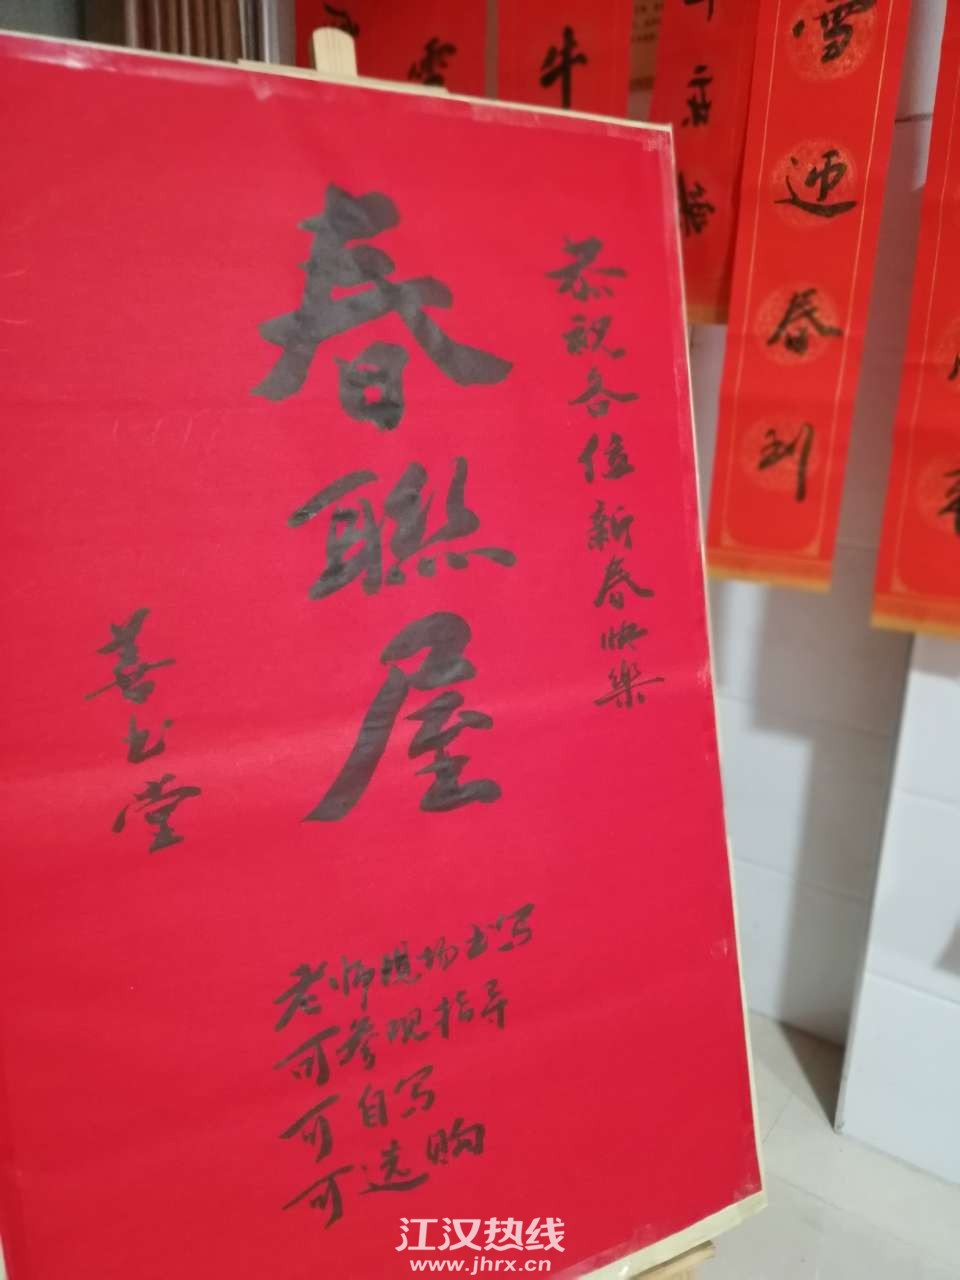 恭祝各位新春快樂
春聯屋
善书堂
老师现场书写
可参观指导
可自写
可选购
牛
雪迎春到
江汉热线
www.jhrx.cn